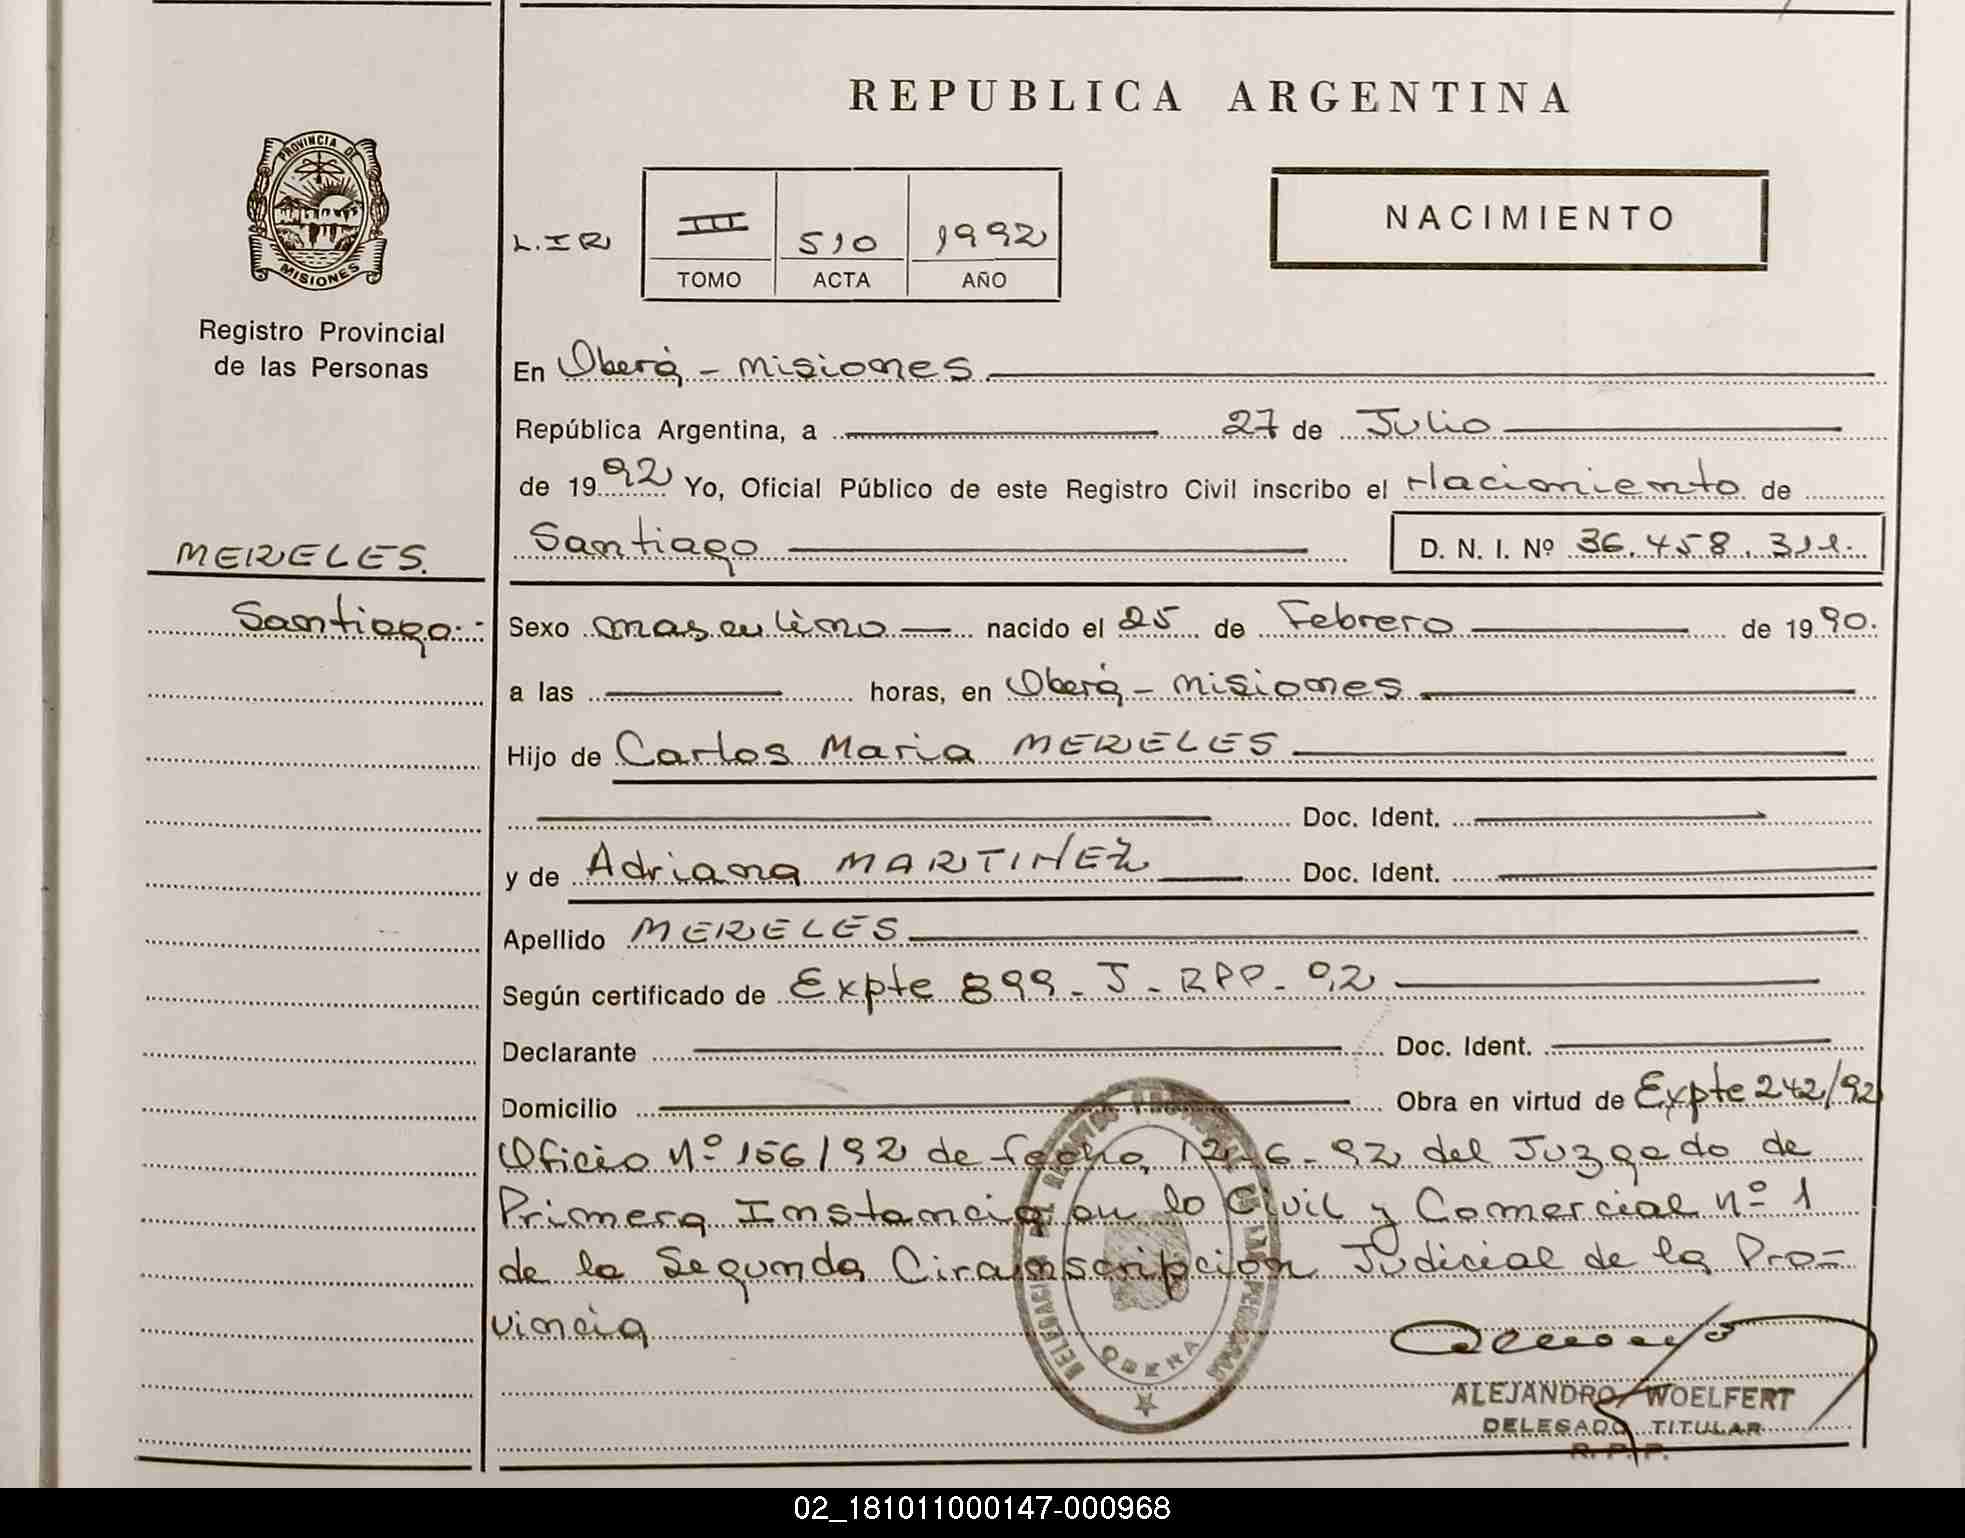 REPUBLICA ARGENTINA
PROVINCIA DE
MISIONES
Registro Provincial
de las Personas
L. I R
III 510 1992
TOMO ACTA AÑO
NACIMIENTO
En Oberá - Misiones
República Argentina, a 27 de Julio
de 1992 Yo, Oficial Público de este Registro Civil inscribo el Nacimiento de
Santiago D. N. I. Nº 36.458.311.
MERELES.
Santiago.-
Sexo masculino nacido el 25 de Febrero de 1990.
a las horas, en Oberá - Misiones
Hijo de Carlos Maria MERELES
Doc. Ident.
y de Adriana MARTINEZ Doc. Ident.
Apellido MERELES
Según certificado de Expte 899 - J - RPP - 92
Declarante Doc. Ident.
Domicilio Obra en virtud de Expte 242/92
Oficio Nº 156/92 de fecha, 12-6-92 del Juzgado de
Primera Instancia en lo Civil y Comercial nº 1
de la Segunda Circunscripción Judicial de la Pro=
vincia
OBERA
ALEJANDRO WOELFERT
DELEGADO TITULAR
R. P. P.
02_181011000147-000968